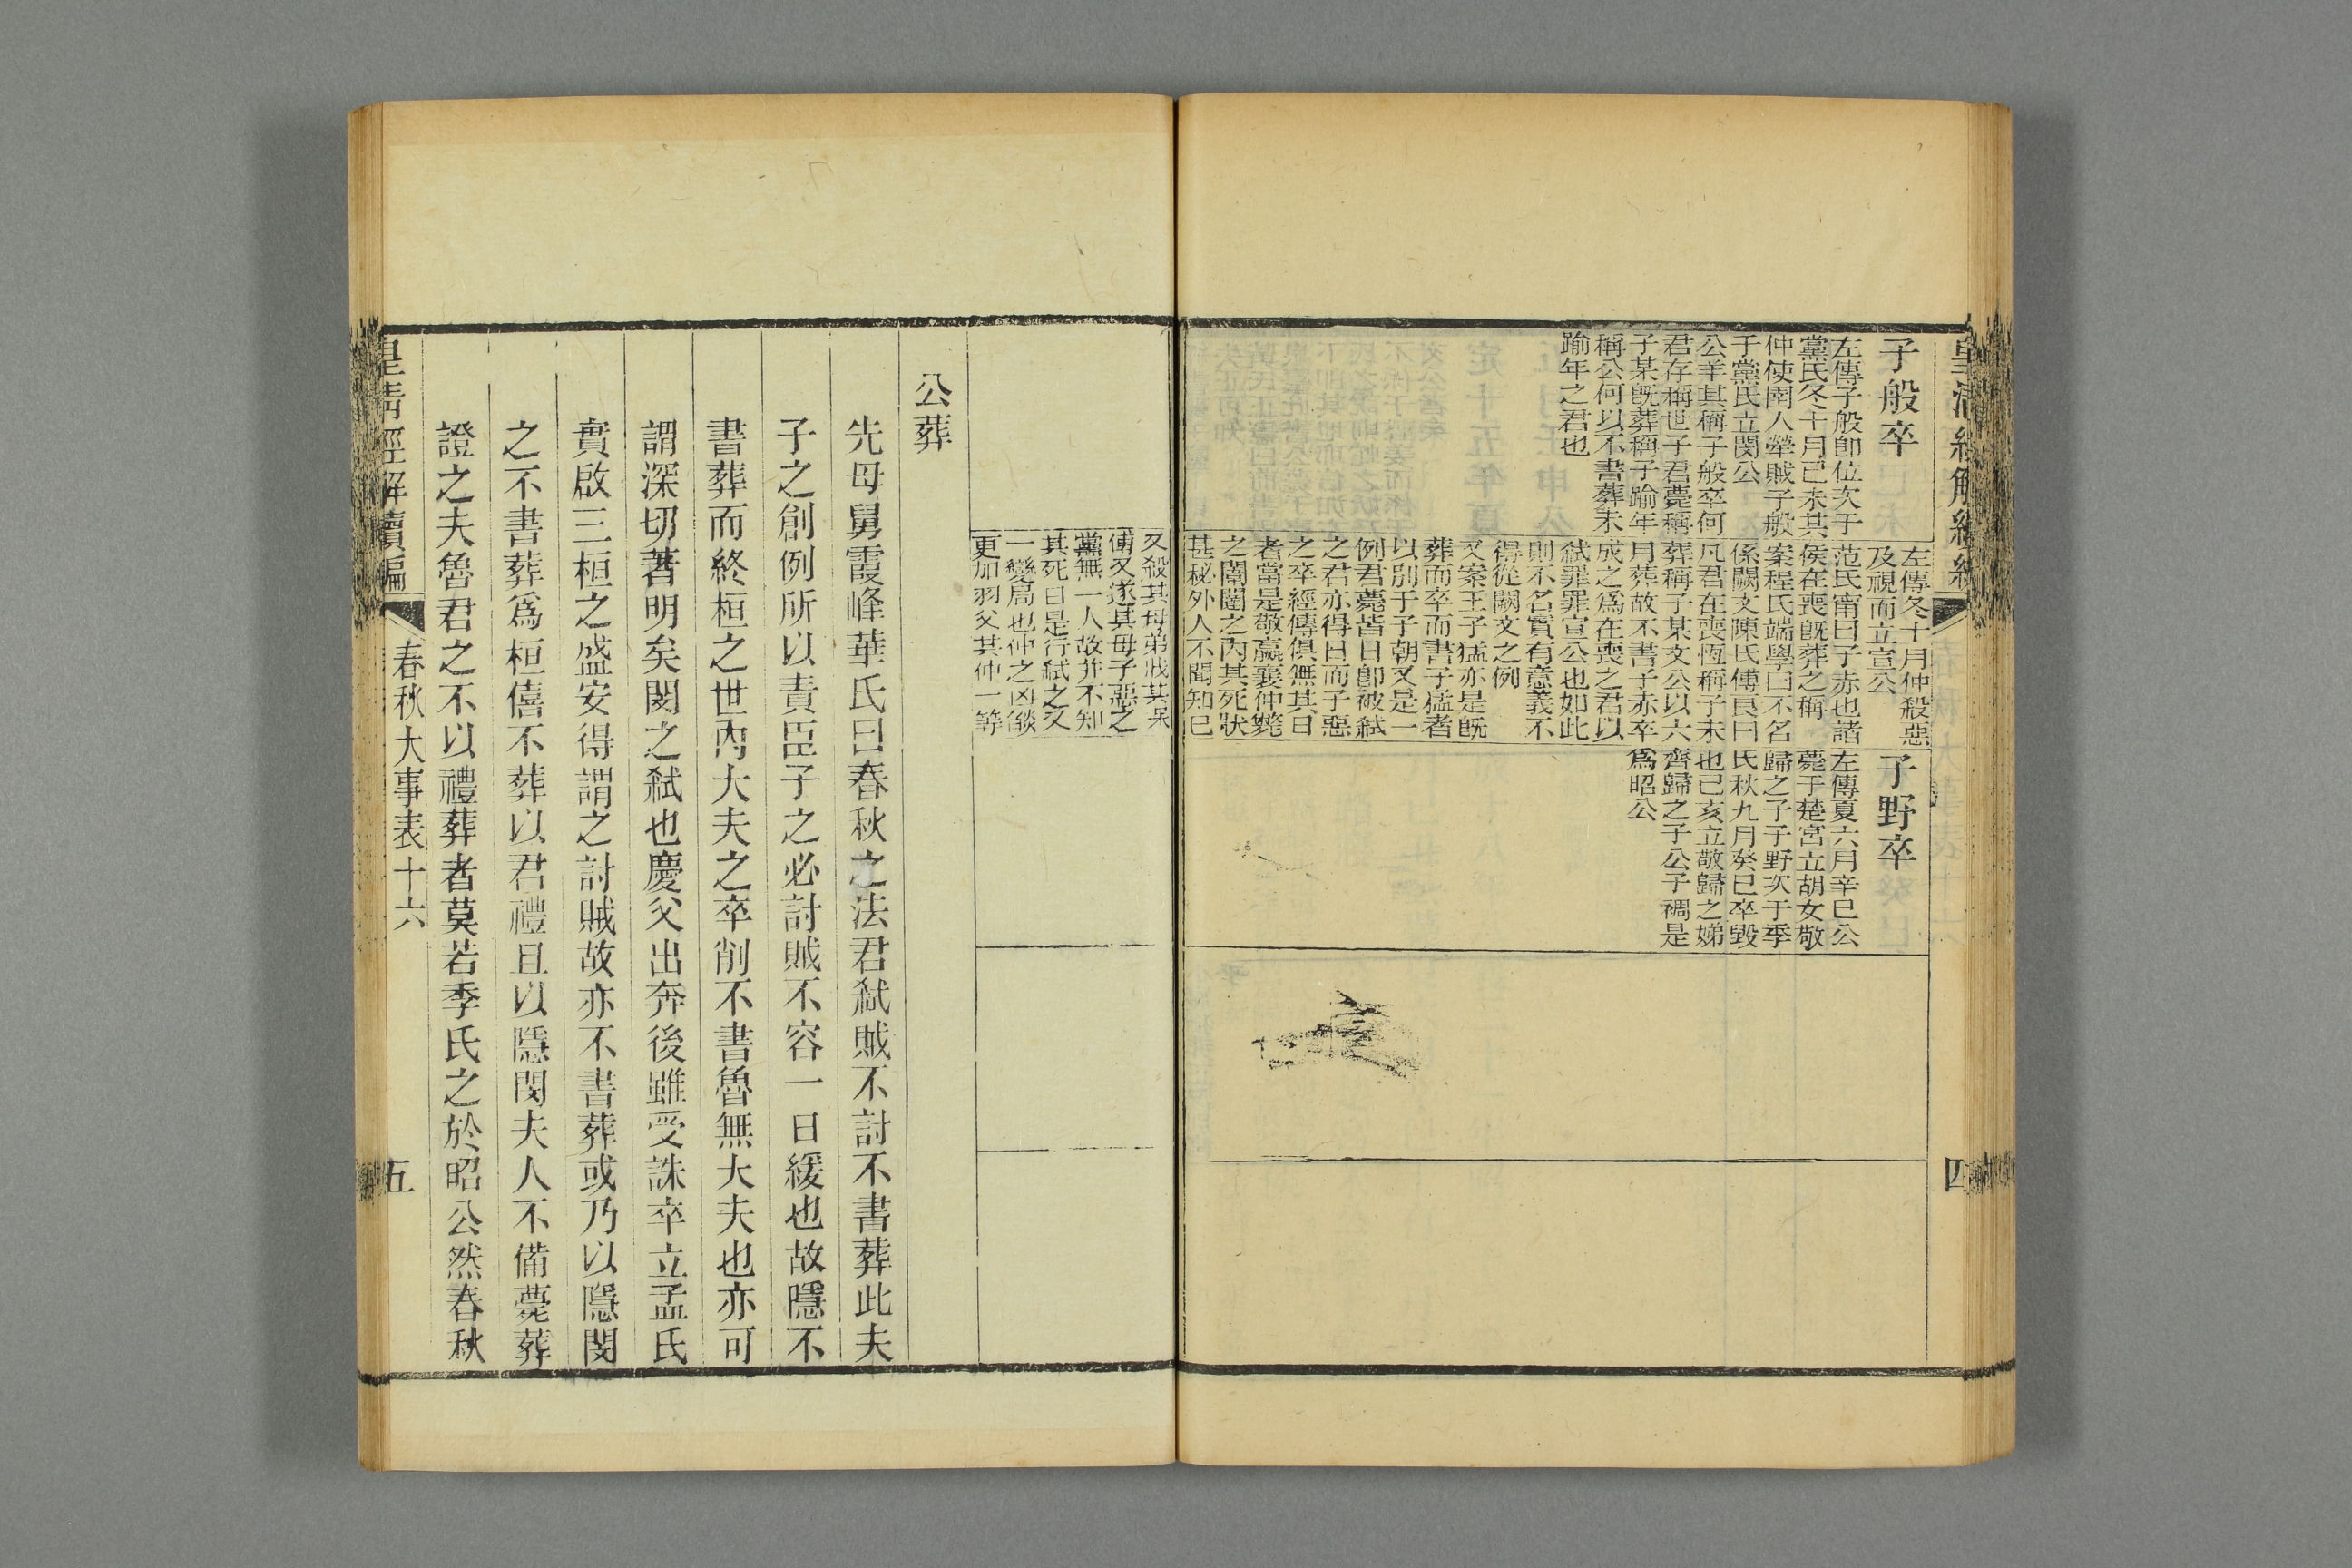 子般卒
左傳子般卽位次于
黨氏冬十月己未共
仲使圉人犖賊子般
于黨氏立閔公
公羊其稱子般卒何
君存稱世子君薨稱
子某旣葬稱子踰年
稱公何以不書葬未
踰年之君也
左傳冬十月仲殺惡
及視而立宣公
范氏甯曰子赤也諸
侯在喪旣葬之稱
案程氏端學曰不名
係闕文陳氏傅良曰
凡君在喪恆稱子未
葬稱子某文公以六
月葬故不書子赤卒
成之爲在喪之君以
弑罪罪宣公也如此
則不名實有意義不
得從闕文之例
又案王子猛亦是旣
葬而卒而書子猛者
以別于子朝又是一
例君薨皆日卽被弑
之君亦得日而子惡
之卒經傳俱無其日
者當是敬嬴襄仲斃
之闇闥之內其死狀
甚秘外人不聞知已
子野卒
左傳夏六月辛巳公
薨于楚宮立胡女敬
歸之子子野次于季
氏秋九月癸巳卒毀
也己亥立敬歸之娣
齊歸之子公子裯是
爲昭公
四
又殺其母弟戕其保
傅又逐其母子惡之
黨無一人故并不知
其死日是行弑之又
一變局也仲之凶燄
更加羽父共仲一等
公葬
先母舅霞峰華氏曰春秋之法君弑賊不討不書葬此夫
子之創例所以責臣子之必討賊不容一日緩也故隱不
書葬而終桓之世內大夫之卒削不書魯無大夫也亦可
謂深切著明矣閔之弑也慶父出奔後雖受誅卒立孟氏
實啟三桓之盛安得謂之討賊故亦不書葬或乃以隱閔
之不書葬爲桓僖不葬以君禮且以隱閔夫人不備薨葬
證之夫魯君之不以禮葬者莫若季氏之於昭公然春秋
皇淸經解續編
春秋大事表十六
五